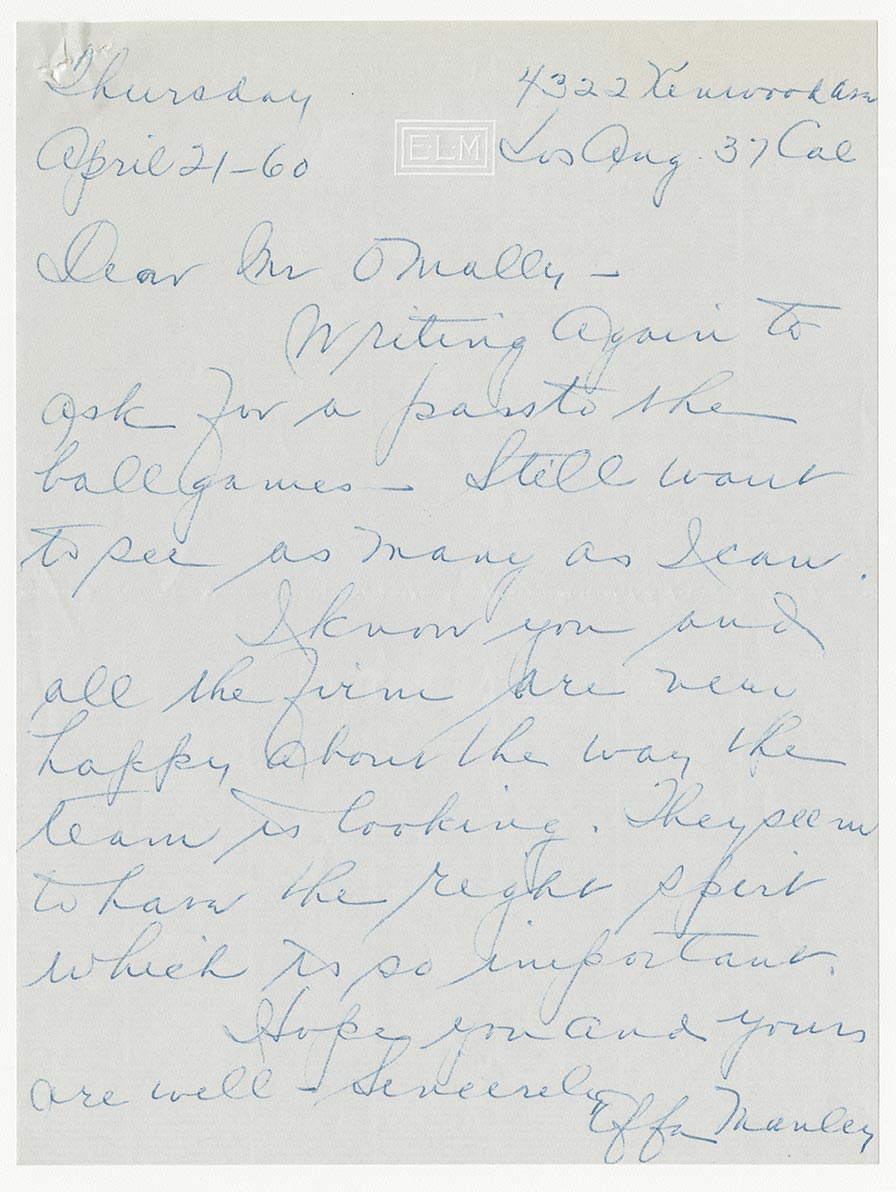 Thursday
4322 Kenwood Ave
April 21-60
E·L·M
Los Ang. 37 Cal
Dear Mr OMally –
Writing Again to
ask for a pass to the
ballgames – Still want
to see as many as I can.
I know you and
all the firm are very
happy about the way the
team is looking. They seem
to have the right spirit
which is so important.
Hope you and yours
are well – Sincerely
Effa Manley